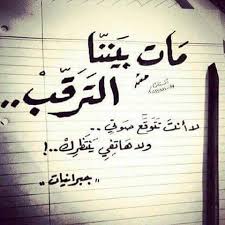 مَات بَيننَا
التَرَقّبْ..
لا أنتَ تتوَقّع صَوتي..
ولا هَاتِفي يَنتَظرِكْ..!
"جبرانيات"